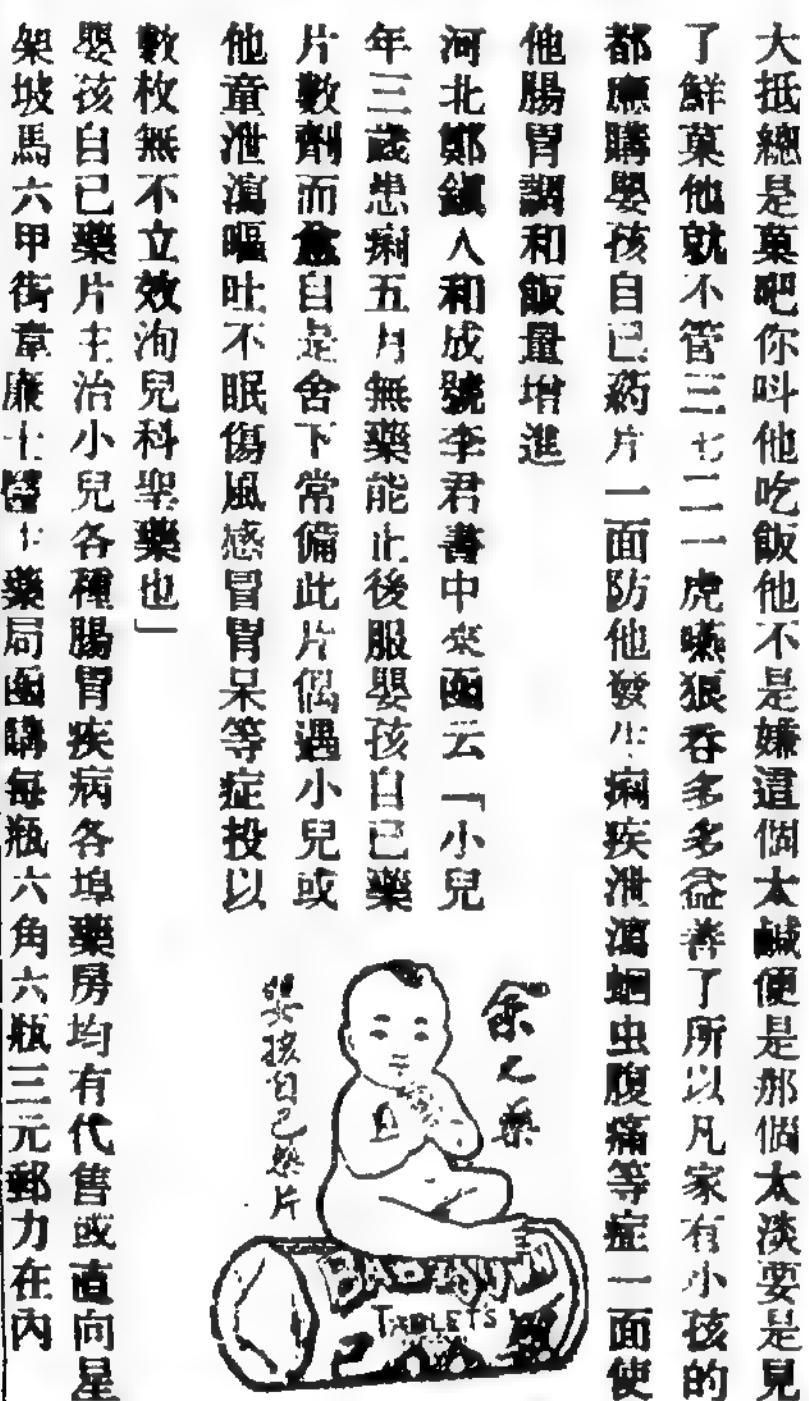 大抵總是菓吧你呌他吃飯他不是嫌這個太鹹便是那個太淡要是見
了鮮菓他就不管三七二一虎嚥狠吞多多益善了所以凡家有小孩的
都應購嬰孩自已葯片一面防他發生痢疾泄瀉蛔虫腹痛等症一面使
他腸胃調和飯量增進
河北鄭鎮人和成號李君書中來函云「小兒
年三歲患痢五月無藥能止後服嬰孩自已藥
片數劑而愈自是舍下常備此片偶遇小兒或
他童泄瀉嘔吐不眠傷風感冒胃呆等症投以
數枚無不立效洵兒科聖藥也」
嬰孩自已藥片主治小兒各種腸胃疾病各埠藥房均有代售或直向星
架坡馬六甲街韋廉士醫士藥局函購每瓶六角六瓶三元郵力在內
余之藥
嬰孩自己藥片
BABY'S OWN
TABLETS